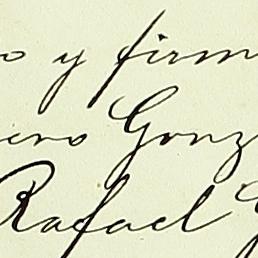 o y firm
ero Gonz
Rafael G